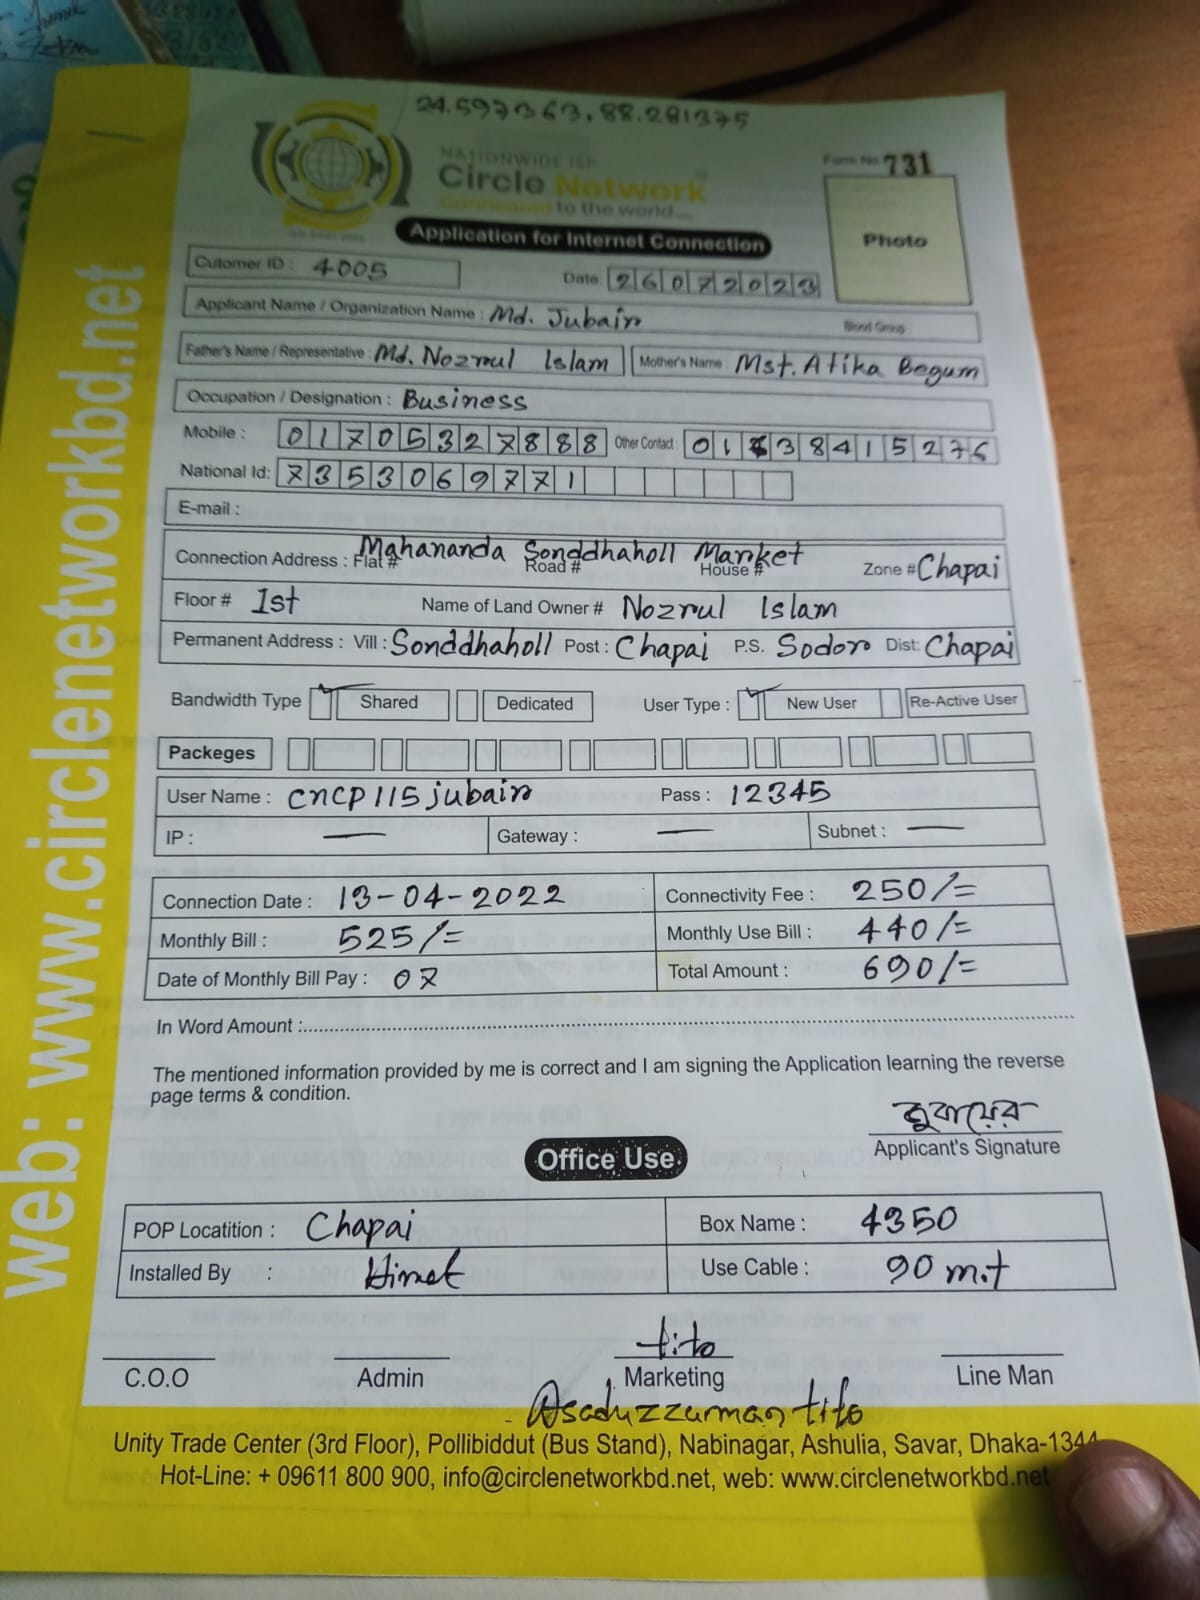 24.597363, 88.281375
NATIONWIDE ISP
Form No 731
Circle Network
Connected to the world....
Photo
Application for Internet Connection
Cutomer ID : 4005
Date: 26072023
Applicant Name / Organization Name : Md. Jubair
Blood Group
Father's Name / Representative : Md. Nozrul Islam Mother's Name : Mst. Atika Begum
Occupation / Designation : Business
Mobile : 01705327888 Other Contact : 01 38415276
National Id: 7353069771
E-mail :
Connection Address : Flat # Mahananda Sonddhaholl Market Road # House # Zone # Chapai
Floor # 1st Name of Land Owner # Nozrul Islam
Permanent Address : Vill : Sonddhaholl Post : Chapai P.S. Sodor Dist: Chapai
Bandwidth Type Shared Dedicated User Type : New User Re-Active User
Packeges
User Name : cncp115jubair Pass : 12345
IP : — Gateway : — Subnet : —
Connection Date : 13-04-2022 Connectivity Fee : 250/=
Monthly Bill : 525/= Monthly Use Bill : 440/=
Date of Monthly Bill Pay : 07 Total Amount : 690/=
In Word Amount :
The mentioned information provided by me is correct and I am signing the Application learning the reverse
page terms & condition.
জুবায়ের
Applicant's Signature
Office Use
POP Locatition : Chapai Box Name : 4350
Installed By : Himel Use Cable : 90 m.t
tito
C.O.O Admin Marketing Line Man
Asaduzzaman tito
Unity Trade Center (3rd Floor), Pollibiddut (Bus Stand), Nabinagar, Ashulia, Savar, Dhaka-1344
Hot-Line: + 09611 800 900, info@circlenetworkbd.net, web: www.circlenetworkbd.net
web: www.circlenetworkbd.net